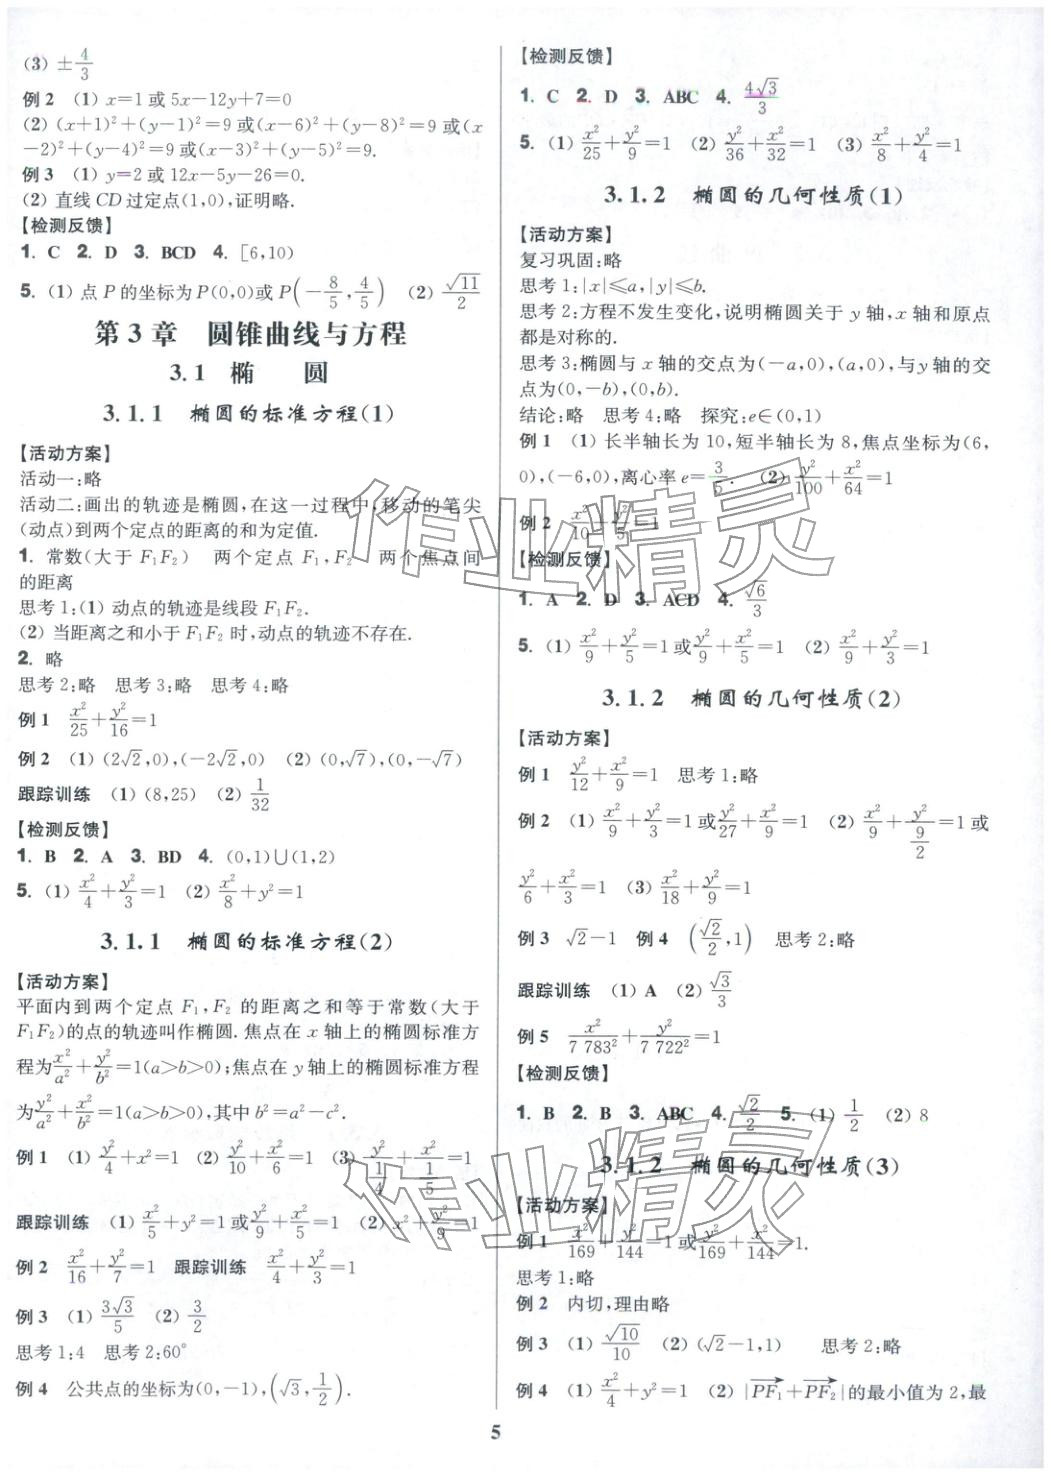 (3) ±4/3
例2 (1) x=1或5x−12y+7=0
(2) (x+1)²+(y−1)²=9或(x−6)²+(y−8)²=9或(x
−2)²+(y−4)²=9或(x−3)²+(y−5)²=9.
例3 (1) y=2或12x−5y−26=0.
(2) 直线CD过定点(1,0),证明略.
【检测反馈】
1. C 2. D 3. BCD 4. [6,10)
5. (1) 点P的坐标为P(0,0)或P(−8/5,4/5) (2) √11/2
第3章 圆锥曲线与方程
3.1 椭 圆
3.1.1 椭圆的标准方程(1)
【活动方案】
活动一:略
活动二:画出的轨迹是椭圆,在这一过程中,移动的笔尖
(动点)到两个定点的距离的和为定值.
1. 常数(大于F₁F₂) 两个定点F₁,F₂ 两个焦点间
的距离
思考1:(1) 动点的轨迹是线段F₁F₂.
(2) 当距离之和小于F₁F₂时,动点的轨迹不存在.
2. 略
思考2:略 思考3:略 思考4:略
例1 x²/25+y²/16=1
例2 (1) (2√2,0),(−2√2,0) (2) (0,√7),(0,−√7)
跟踪训练 (1) (8,25) (2) 1/32
【检测反馈】
1. B 2. A 3. BD 4. (0,1)∪(1,2)
5. (1) x²/4+y²/3=1 (2) x²/8+y²=1
3.1.1 椭圆的标准方程(2)
【活动方案】
平面内到两个定点F₁,F₂的距离之和等于常数(大于
F₁F₂)的点的轨迹叫作椭圆.焦点在x轴上的椭圆标准方
程为x²/a²+y²/b²=1(a>b>0);焦点在y轴上的椭圆标准方程
为y²/a²+x²/b²=1(a>b>0),其中b²=a²−c².
例1 (1) y²/4+x²=1 (2) y²/10+x²/6=1 (3) y²/(1/4)+x²/(1/5)=1
跟踪训练 (1) x²/5+y²=1或y²/9+x²/5=1 (2) x²+y²/9=1
例2 x²/16+y²/7=1 跟踪训练 x²/4+y²/3=1
例3 (1) 3√3/5 (2) 3/2
思考1:4 思考2:60°
例4 公共点的坐标为(0,−1),(√3,1/2).
【检测反馈】
1. C 2. D 3. ABC 4. 4√3/3
5. (1) x²/25+y²/9=1 (2) y²/36+x²/32=1 (3) x²/8+y²/4=1
3.1.2 椭圆的几何性质(1)
【活动方案】
复习巩固:略
思考1:|x|≤a,|y|≤b.
思考2:方程不发生变化,说明椭圆关于y轴,x轴和原点
都是对称的.
思考3:椭圆与x轴的交点为(−a,0),(a,0),与y轴的交
点为(0,−b),(0,b).
结论:略 思考4:略 探究:e∈(0,1)
例1 (1) 长半轴长为10,短半轴长为8,焦点坐标为(6,
0),(−6,0),离心率e=3/5. (2) y²/100+x²/64=1
例2 x²/10+y²/5=1
【检测反馈】
1. A 2. D 3. ACD 4. √6/3
5. (1) x²/9+y²/5=1或y²/9+x²/5=1 (2) x²/9+y²/3=1
3.1.2 椭圆的几何性质(2)
【活动方案】
例1 y²/12+x²/9=1 思考1:略
例2 (1) x²/9+y²/3=1或y²/27+x²/9=1 (2) x²/9+y²/(9/2)=1或
y²/6+x²/3=1 (3) x²/18+y²/9=1
例3 √2−1 例4 (√2/2,1) 思考2:略
跟踪训练 (1) A (2) √3/3
例5 x²/7 783²+y²/7 722²=1
【检测反馈】
1. B 2. B 3. ABC 4. √2/2 5. (1) 1/2 (2) 8
3.1.2 椭圆的几何性质(3)
【活动方案】
例1 x²/169+y²/144=1或y²/169+x²/144=1.
思考1:略
例2 内切,理由略
例3 (1) √10/10 (2) (√2−1,1) 思考2:略
例4 (1) x²/4+y²=1 (2) |PF₁+PF₂|的最小值为2,最
5
作业精灵
作业精灵